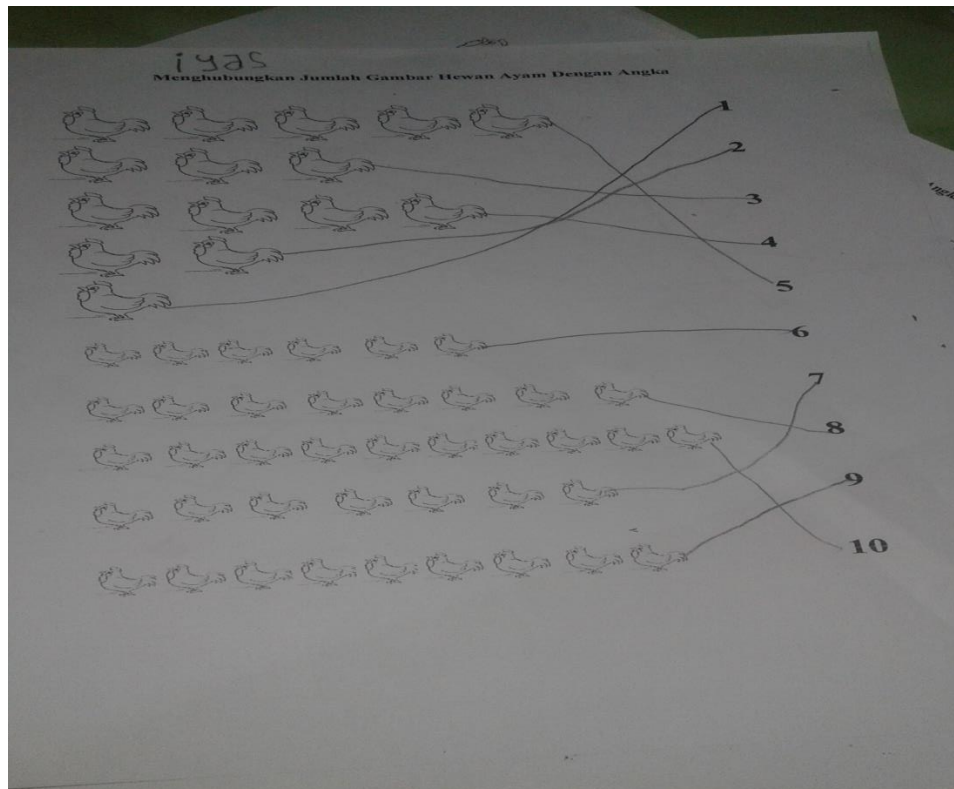 iyas
Menghubungkan Jumlah Gambar Hewan Ayam Dengan Angka
1
2
3
4
5
6
7
8
9
10